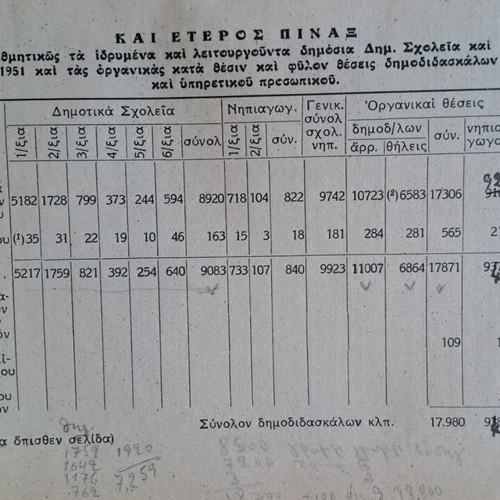 ΚΑΙ ΕΤΕΡΟΣ ΠΙΝΑΞ
θμητικῶς τὰ ἱδρυμένα καὶ λειτουργοῦντα δημόσια Δημ. Σχολεῖα καὶ
1951 καὶ τὰς ὀργανικὰς κατὰ θέσιν καὶ φῦλον θέσεις δημοδιδασκάλων
καὶ ὑπηρετικοῦ προσωπικοῦ.
Δημοτικὰ Σχολεῖα Νηπιαγωγ. Γενικ. σύνολ σχολ. νηπ. Ὀργανικαὶ θέσεις
1/ξια 2/ξια 3/ξια 4/ξια 5/ξια 6/ξια σύνολ 1/ξια 2/ξια σύν. δημοδ/λων ἄρρ. θήλεις σύν. νηπια γωγο
5182 1728 799 373 244 594 8920 718 104 822 9742 10723 (²) 6583 17306
ου (¹) 35 31 22 19 10 46 163 15 3 18 181 284 281 565
5217 1759 821 392 254 640 9083 733 107 840 9923 11007 6864 17871
109
Σύνολον δημοδιδασκάλων κλπ. 17.980
α ὄπισθεν σελίδα)
1759 1920
1642 7259
1176
762
8500
7200